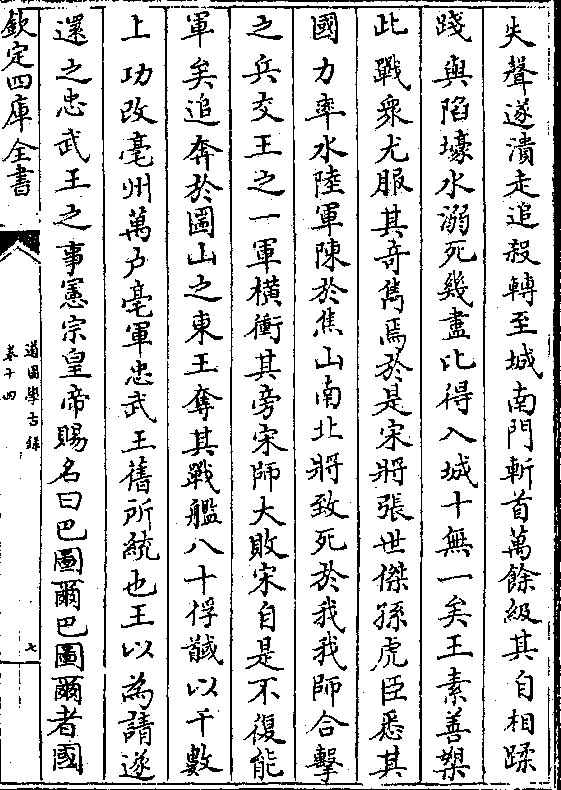 失聲遂潰走追殺轉至城南門斬首萬餘級其自相蹂
踐與陷壕水溺死幾盡比得入城十無一矣王素善槊
此戰衆尤服其奇雋焉於是宋將張世傑孫虎臣悉其
國力率水陸軍陳於焦山南北將致死於我我師合擊
之兵交王之一軍横衝其旁宋師大敗宋自是不復能
軍矣追奔於圌山之東王奪其戰艦八十俘馘以千數
上功改亳州萬户亳軍忠武王舊所統也王以為請遂
還之忠武王之事憲宗皇帝賜名曰巴圖爾巴圖爾者國
欽定四庫全書
道園學古録
卷十四
七